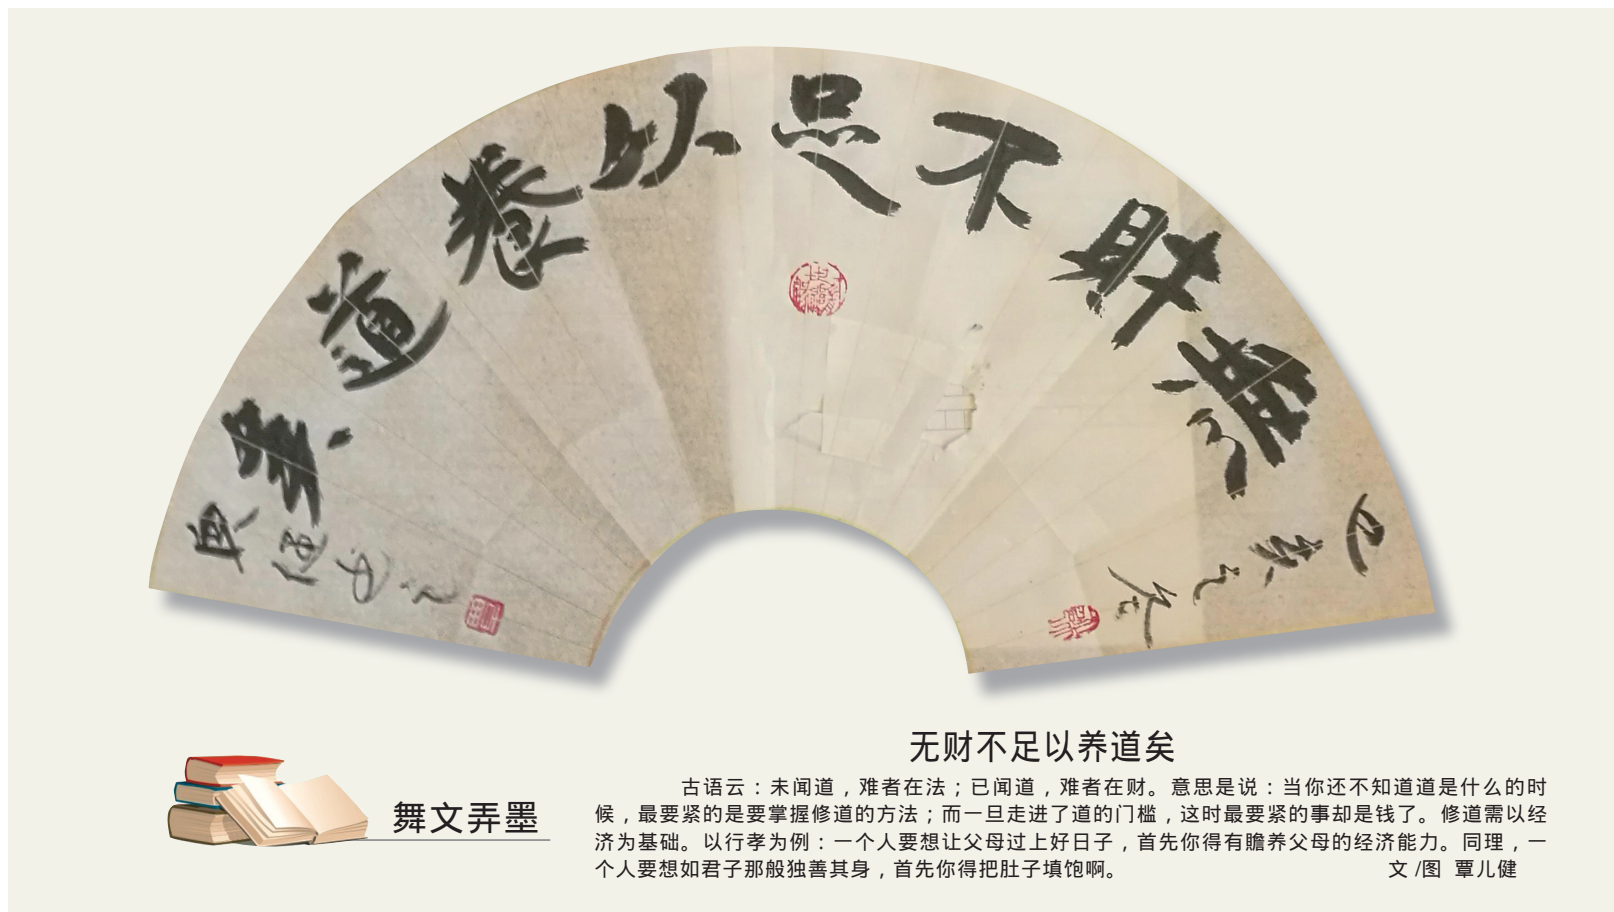 無財不足以養道矣
无财不足以养道矣
古语云：未闻道，难者在法；已闻道，难者在财。意思是说：当你还不知道道是什么的时
候，最要紧的是要掌握修道的方法；而一旦走进了道的门槛，这时最要紧的事却是钱了。修道需以经
济为基础。以行孝为例：一个人要想让父母过上好日子，首先你得有赡养父母的经济能力。同理，一
个人要想如君子那般独善其身，首先你得把肚子填饱啊。
文/图 覃儿健
舞文弄墨